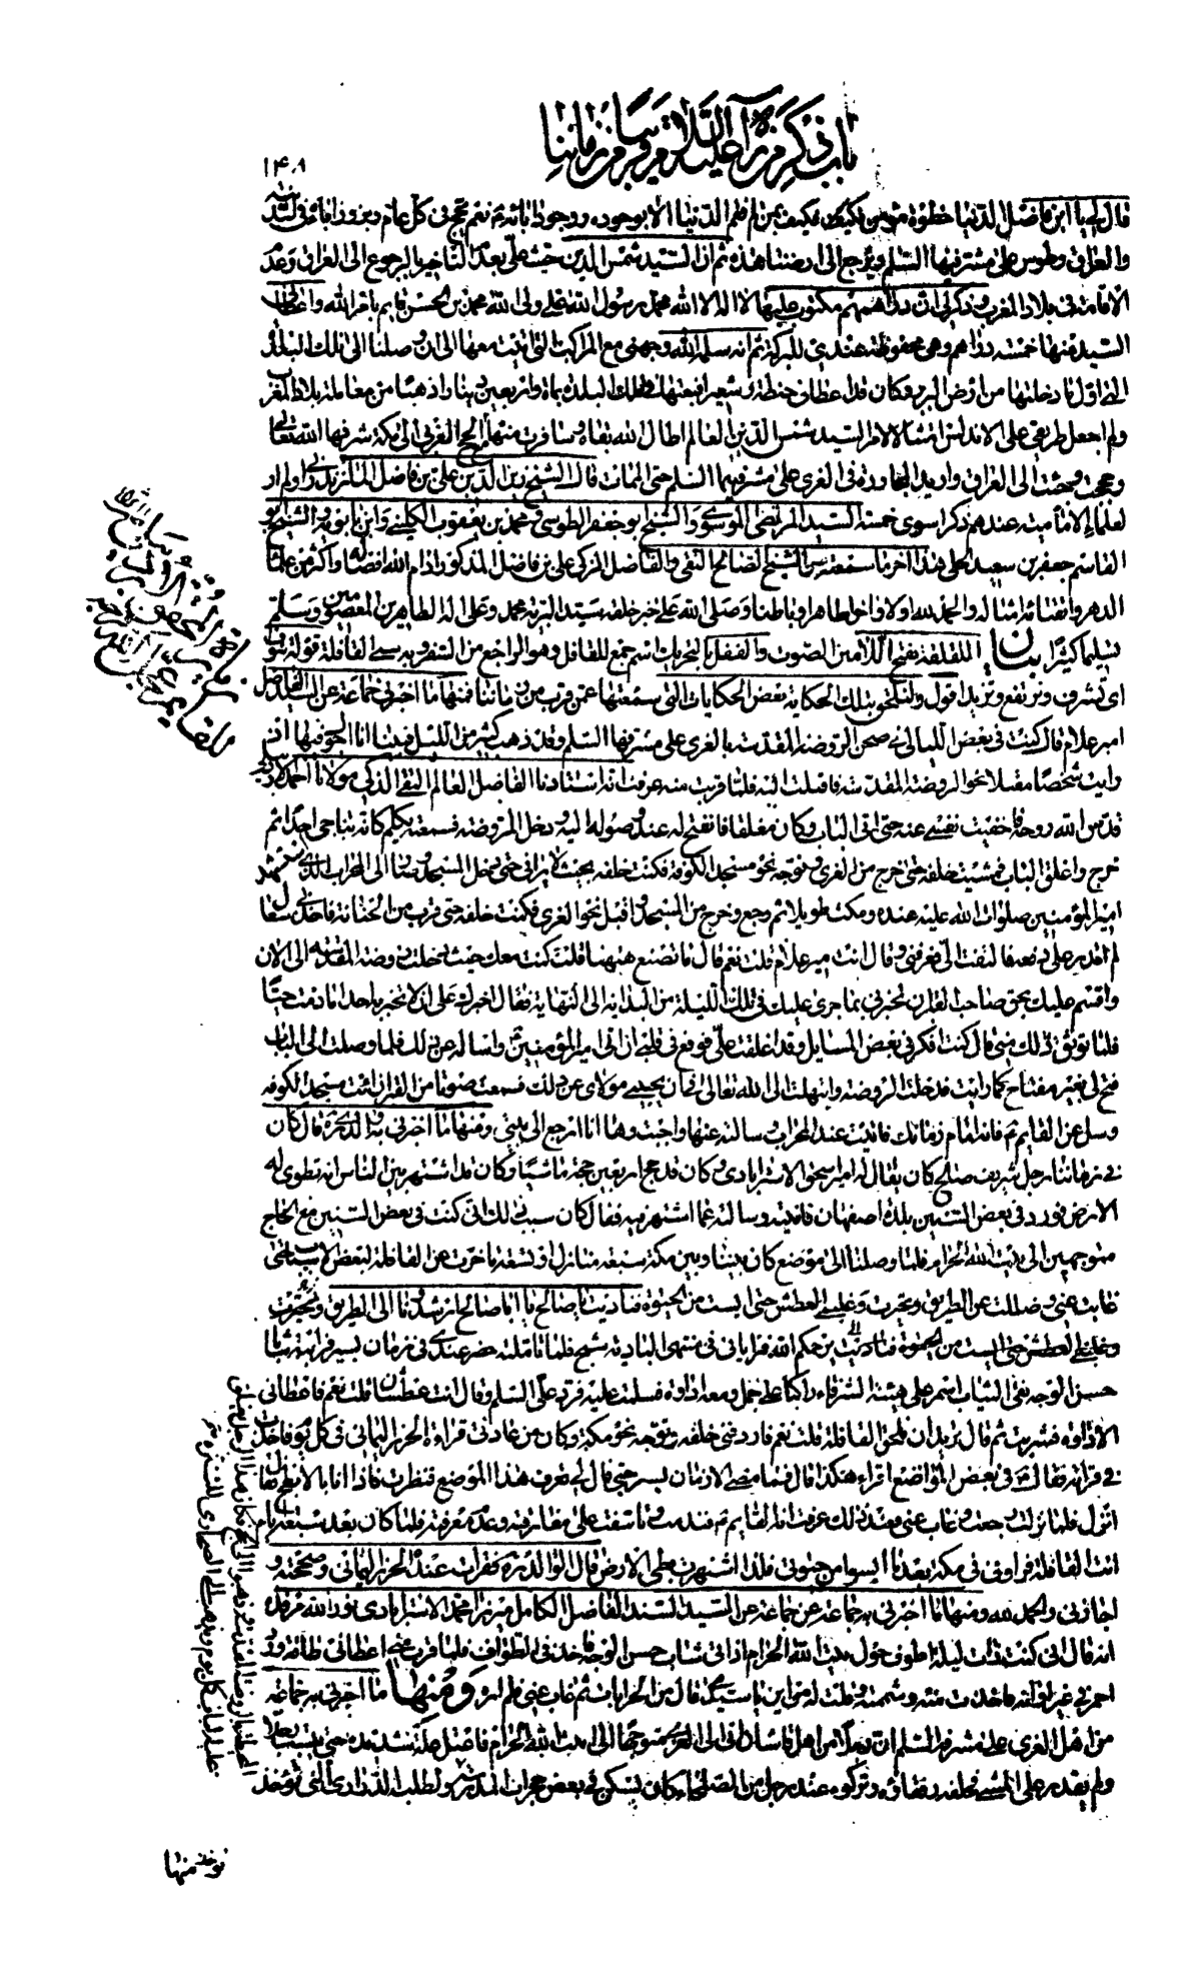 باب في ذكر من رآه عليه السلام قريبا من زماننا
١۴٠٨
قال لي يا ابن فاضل الدنيا خطوة مؤمن فكيف بمن لم تقم الدنيا الا بوجوده ووجود آبائه نعم يحج في كل عام ويزور آباءه في المدينة
والعراق وطوس على مشرفيها السلم ويرجع الى ارضنا هذه ثم ان السيد شمس الدين حث علي بعدم التاخير بالرجوع الى العراق وعدم
الاقامة في بلاد المغرب وذكر لي ان دراهمهم مكتوب عليها لا اله الا الله محمد رسول الله علي ولي الله محمد بن الحسن قايم بامر الله واعطاني
السيد منها خمسة دراهم وهي محفوظة عندي للبركة ثم انه سلمه الله وجهني مع المراكب التي اتيت معها الى ان وصلنا الى تلك البلدة
التي اول ما دخلتها من ارض البربر وكان قد اعطاني حنطة وشعيرا فبعتها في تلك البلدة بماة واربعين دينارا ذهبا من معاملة بلاد المغرب
ولم اجعل طريقي على الاندلس امتثالا لامر السيد شمس الدين العالم اطال الله بقاه وسافرت منها مع الحج المغربي الى مكة شرفها الله تعالى
وحججت وجئت الى العراق واريد المجاورة في الغري على مشرفيها السلم حتى الممات قال الشيخ زين الدين علي بن فاضل المازندراني ولم ار
لعلماء الامامية عندهم ذكرا سوى خمسة السيد المرتضى الموسوي والشيخ ابو جعفر الطوسي ومحمد بن يعقوب الكليني وابن بابويه والشيخ ابو
القاسم جعفر بن سعيد الحلي هذا آخر ما سمعته من الشيخ الصالح التقي والفاضل الزكي علي بن فاضل المذكور ادام الله افضاله واكثر من علماء
الدهر واتقيائه امثاله والحمد لله اولا وآخرا ظاهرا وباطنا وصلى الله على خير خلقه سيد البرية محمد وعلى آله الطاهرين المعصومين وسلم
تسليما كثيرا بيان اللقلقة بفتح اللامين الصوت والقفل بالتحريك اسم جمع للقافل وهو الراجع من السفر وبه سمي القافلة قوله تنوف
اي تشرف وترتفع وتزيد اقول ولنلحق بتلك الحكاية بعض الحكايات التي سمعتها عمن قرب من زماننا فمنها ما اخبرني جماعة عن السيد الفاضل
امير علام قال كنت في بعض الليالي في صحن الروضة المقدسة بالغري على مشرفها السلم وقد ذهب كثير من الليل فبينا انا اجول فيها اذ
رايت شخصا مقبلا نحو الروضة المقدسة فاقبلت اليه فلما قربت منه عرفت انه استادنا الفاضل العالم التقي الذكي مولانا احمد الاردبيلي
قدس الله روحه فاخفيت نفسي عنه حتى اتى الباب وكان مغلقا فانفتح له عند وصوله اليه ودخل الروضة فسمعته يكلم كانه يناجي احدا ثم
خرج واغلق الباب فمشيت خلفه حتى خرج من الغري وتوجه نحو مسجد الكوفة فكنت خلفه بحيث لا يراني حتى دخل المسجد وصار الى المحراب الذي استشهد
امير المؤمنين صلوات الله عليه عنده ومكث طويلا ثم رجع وخرج من المسجد واقبل نحو الغري فكنت خلفه حتى قرب من الحنانة فاخذني سعال
لم اقدر على دفعه فالتفت الي فعرفني وقال انت مير علام قلت نعم قال ما تصنع ههنا قلت كنت معك حيث دخلت الروضة المقدسة الى الان
واقسم عليك بحق صاحب القبر ان تخبرني بما جرى عليك في تلك الليلة من البداية الى النهاية فقال اخبرك على ان لا تخبر به احدا ما دمت حيا
فلما توثق ذلك مني قال كنت افكر في بعض المسايل وقد اغلقت علي فوقع في قلبي ان اتي امير المؤمنين واساله عن ذلك فلما وصلت الى الباب
فتح لي بغير مفتاح كما رايت فدخلت الروضة وابتهلت الى الله تعالى في ان يجيبني مولاي عن ذلك فسمعت صوتا من القبر ان ائت مسجد الكوفه
وسل عن القايم فانه امام زمانك فاتيت عند المحراب وسالته عنها واجبت وها انا ارجع الى بيتي ومنها ما اخبرني به والدي ره قال كان
في زماننا رجل شريف صالح كان يقال له امير اسحق الاسترابادي وكان قد حج اربعين حجة ماشيا وكان قد اشتهر بين الناس انه تطوى له
الارض فورد في بعض السنين بلدة اصفهان فاتيته وسالته عما اشتهر فيه فقال كان سبب ذلك اني كنت في بعض السنين مع الحاج
متوجهين الى بيت الله الحرام فلما وصلنا الى موضع كان بيننا وبين مكة سبعة منازل او تسعة تاخرت عن القافلة لبعض الاسباب حتى
غابت عني وضللت عن الطريق وتحيرت وغلبني العطش حتى ايست من الحيوة فناديت يا صالح يا ابا صالح ارشدونا الى الطريق يرحمكم الله
وغلبني العطش حتى ايست من الحيوة فناديت يرحمكم الله فتراءى لي في منتهى البادية شبح فلما تاملته حضر عندي في زمان يسير فرايته شابا
حسن الوجه نقي الثياب اسمر على هيئة الشرفاء راكبا على جمل ومعه اداوة فسلمت عليه فرد علي السلم وقال انت عطشان قلت نعم فاعطاني
الاداوة فشربت ثم قال تريد ان تلحق القافلة قلت نعم فاردفني خلفه وتوجه نحو مكة وكان من عادتي قراءة الحرز اليماني في كل يوم فاخذت
في قراءته فقال في بعض المواضع اقراء هكذا قال فما مضى الا زمان يسير حتى قال لي تعرف هذا الموضع فنظرت فاذا انا بالابطح فقال
انزل فلما نزلت رجعت وغاب عني فعند ذلك عرفت انه القايم فندمت وتاسفت على مفارقته وعدم معرفته فلما كان بعد سبعة ايام
اتت القافلة فراوني في مكة بعد ما ايسوا من حيوتي فلذا اشتهرت بطي الارض قال الوالد ره فقرات عنده الحرز اليماني وصححته و
اجازني والحمد لله ومنها ما اخبرني به جماعة عن جماعة عن السيد السند الفاضل الكامل ميرزا محمد الاسترابادي نور الله مرقده
انه قال اني كنت ذات ليلة اطوف حول بيت الله الحرام اذ اتى شاب حسن الوجه فاخذ في الطواف فلما قرب مني اعطاني طاقة ورد
احمر في غير اوانه فاخذت منه وشممته وقلت له من اين يا سيدي قال من الخرابات ثم غاب عني فلم اره ومنها ما اخبرني به جماعة
من اهل الغري على مشرفه السلم ان رجلا من اهل قاشان اتى الى الغري متوجها الى بيت الله الحرام فاعتل علة شديدة حتى يبست رجلاه
ولم يقدر على المشي فخلفه رفقاؤه وتركوه عند رجل من الصلحاء كان يسكن في بعض حجرات المدرسة لطلب الدراري التي تؤخذ
تؤخذ منها